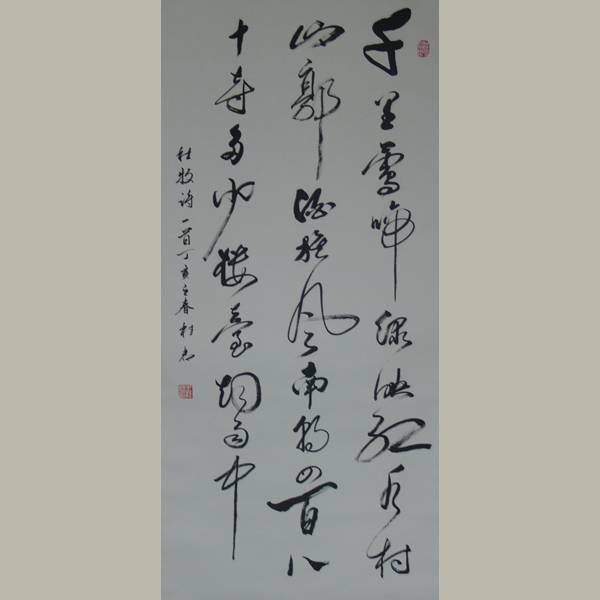 千里鶯啼緑映红水村
山郭酒旗风南朝四百八
十寺多少楼臺烟雨中
杜牧诗一首丁亥之春